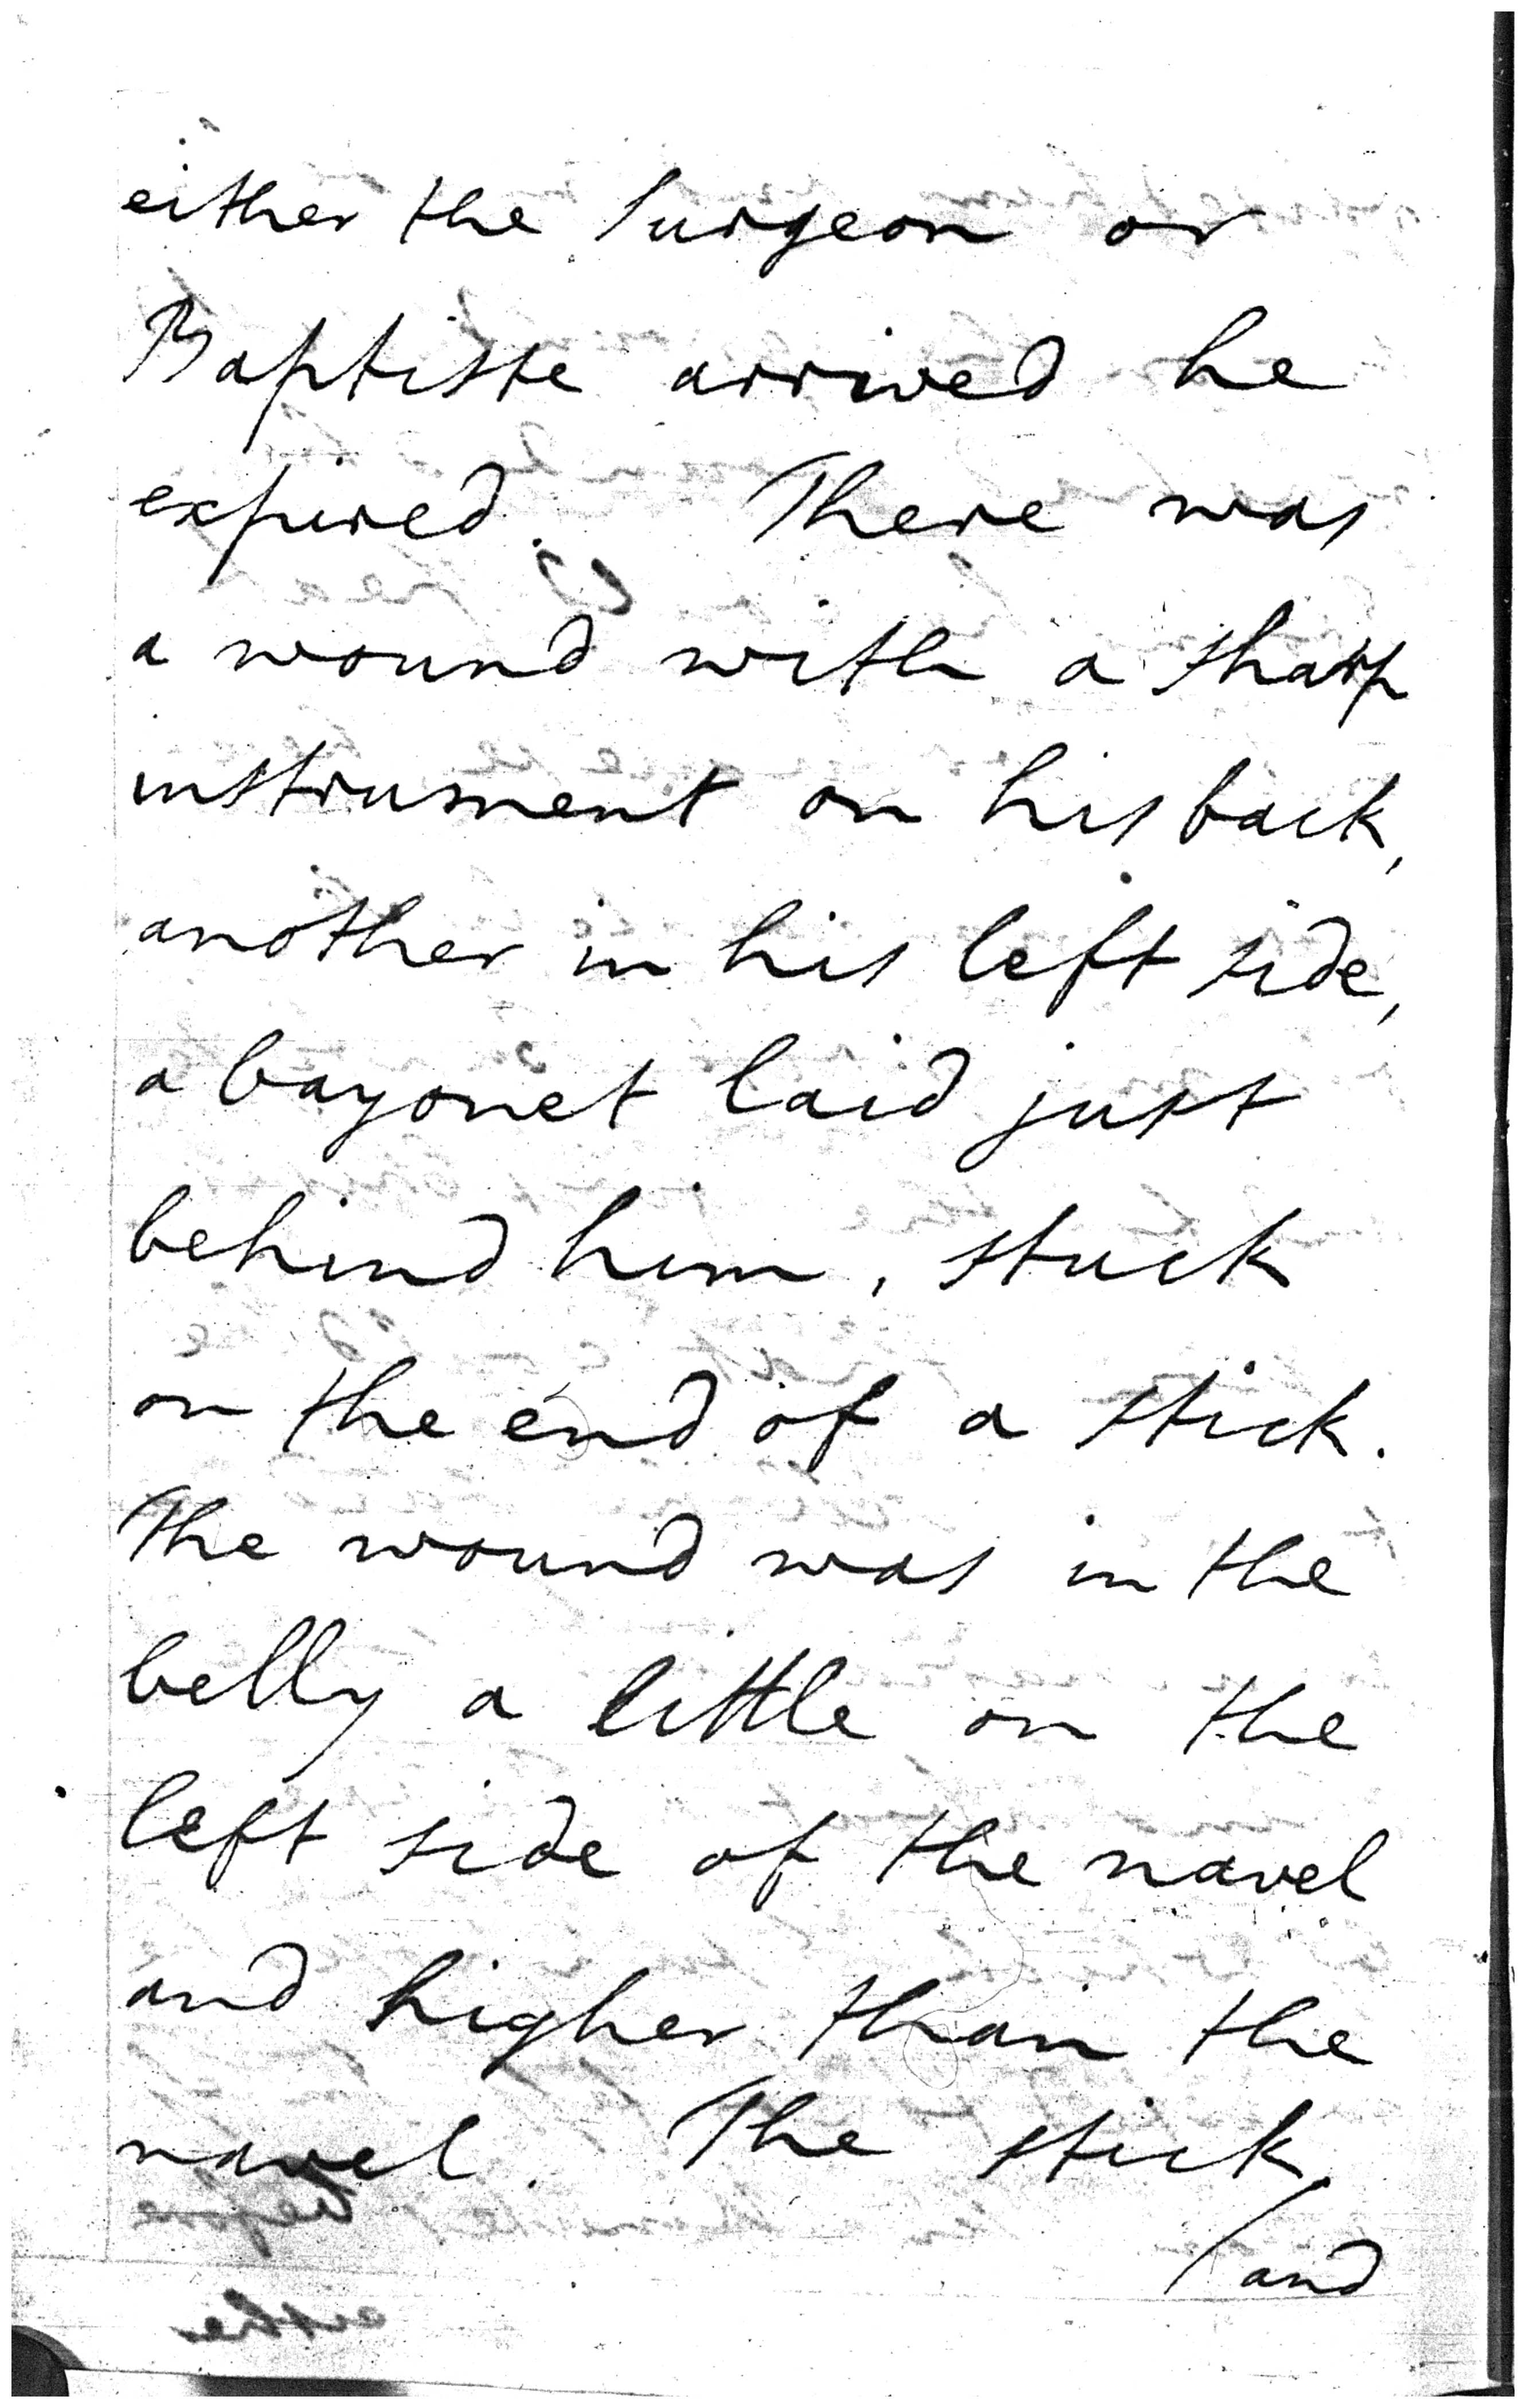 either the Surgeon or
Baptiste arrived he
expired. There was
a wound with a sharp
instrument on his back,
another in his left side,
a bayonet laid just
behind him, stuck
on the end of a stick.
The wound was in the
belly a little on the
left side of the navel
and higher than the
navel. The stick
/and